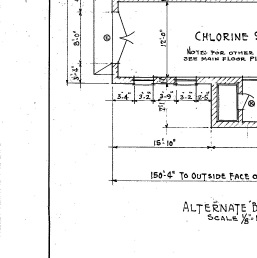 CHLORINE S
NOTE: FOR OTHER
SEE MAIN FLOOR PL
8'-0"
12'-0"
3'-4"
3'-4" 3'-2" 3'-9" 3'-2"
15'-10"
150'-4" TO OUTSIDE FACE O
ALTERNATE "B
SCALE 1/8"=